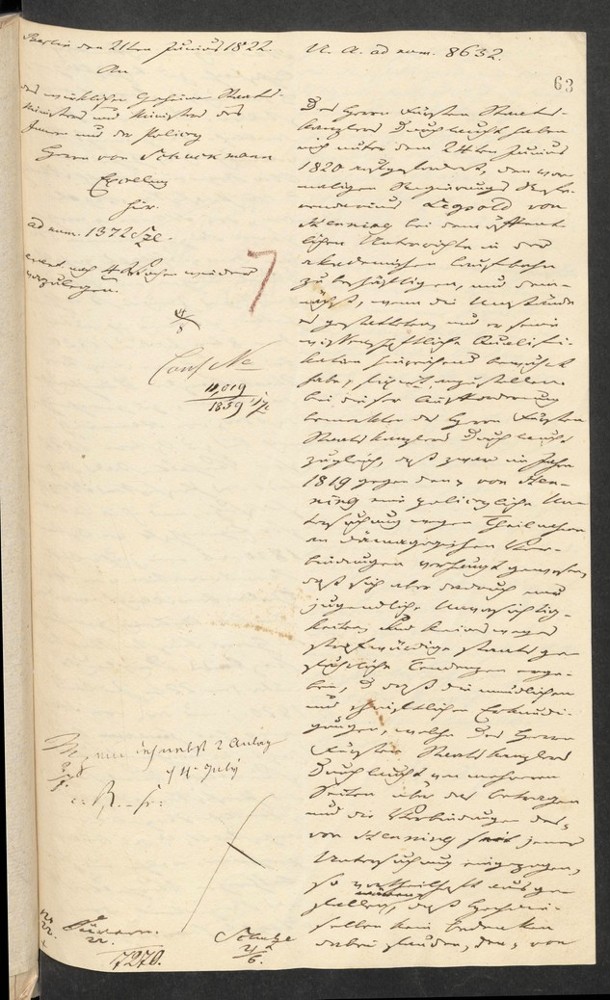 Berlin den 21ten Junius 1822.
An
des wirklichen Geheimen Staats-
Ministers und Ministers des
Innern und der Polizey
Herrn von Schuckmann
Excellenz
hier.
ad num. 1372
nach 4 Wochen wieder
vorzulegen.
4,019
1839
U. A. ad num. 8632.
63
Des Herrn Fürsten Staats-
kanzlers Durchlaucht haben
mich unter dem 24ten Junius
1820 aufgefordert, den vor-
maligen Regierungs Refe-
rendarius Leopold von
Henning bei dem öffent-
lichen Unterrichte in der
akademischen Laufbahn
zu beschäftigen, und dem-
nächst, wenn die Umstände
es gestatteten, und er seine
wissenschaftliche Qualifi-
kation hinreichend bewährt
habe, fixirt anzustellen.
Bei dieser Aufforderung
bemerkten des Herrn Fürsten
Staatskanzlers Durchlaucht
zugleich, daß zwar im Jahre
1819 gegen den von Hen-
ning eine polizeyliche Un-
tersuchung wegen Theilnahme
an demagogischen Ver-
bindungen verhängt gewesen,
daß sich aber dadurch nur
jugendliche Unvorsichtig-
keiten, und keinesweges
strafwürdige staatsge-
fährliche Tendenzen erge-
ben, daß die mündlichen
und schriftlichen Erkundi-
gungen, welche des Herrn
Fürsten Staatskanzlers
Durchlaucht von mehreren
Seiten über das Betragen
und die Verbindungen des
von Henning seit jener
Untersuchung eingezogen,
so vortheilhaft ausge-
fallen, daß Hochdie-
selben kein Bedenken
dabei fänden, den von
nebst 2 Anlag
July
7270.
Schulze
21/6.